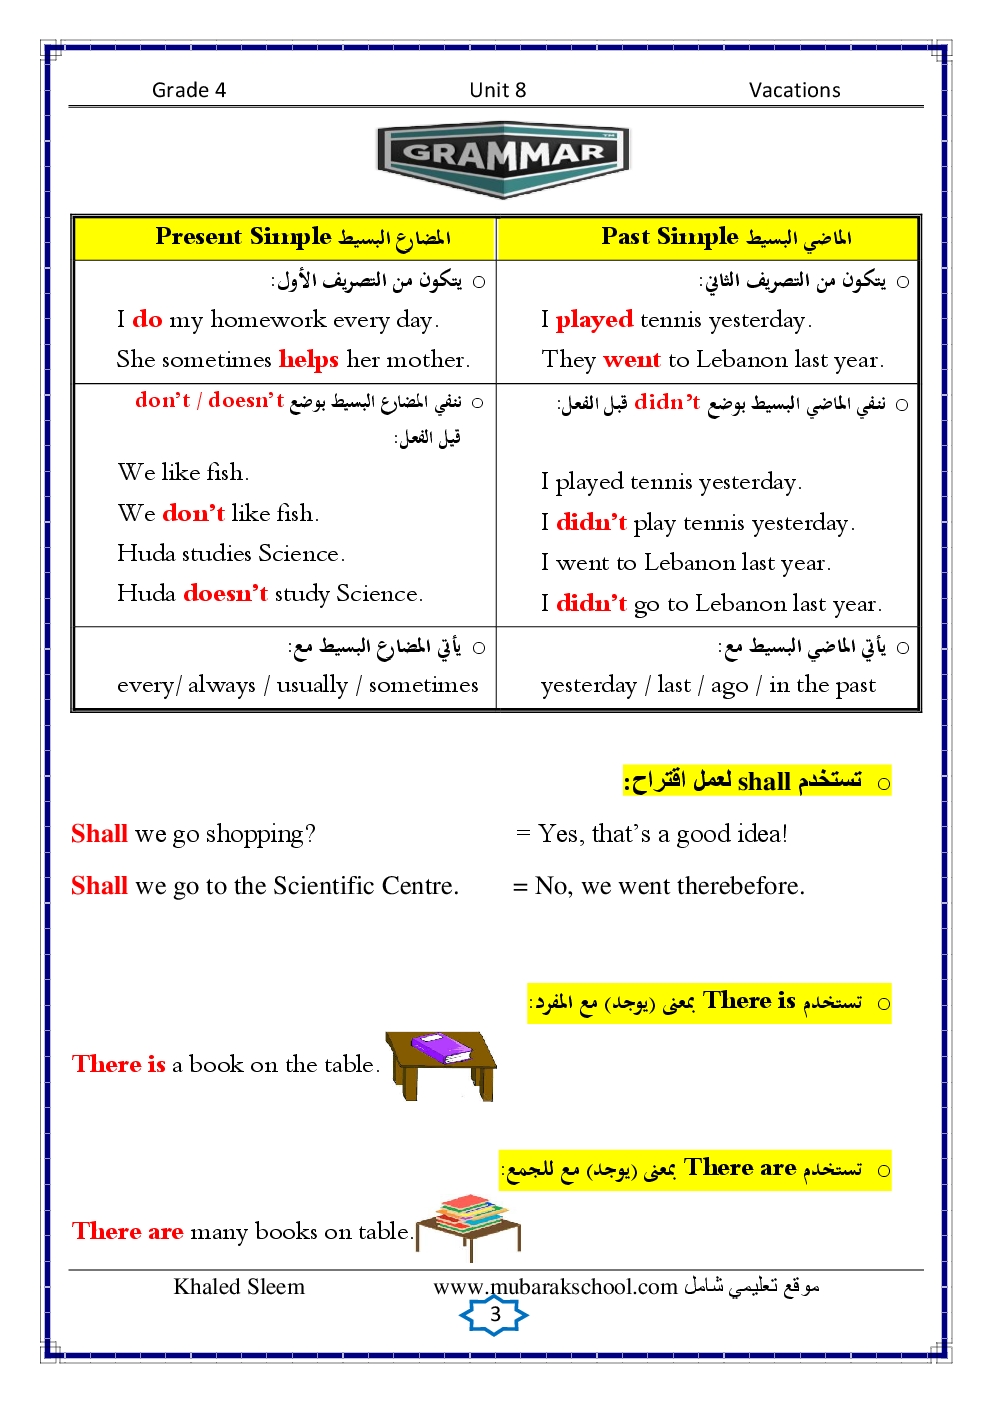 Grade 4 Unit 8 Vacations
GRAMMAR™
Present Simple المضارع البسيط
الماضي البسيط Past Simple
○ يتكون من التصريف الأول:
I do my homework every day.
She sometimes helps her mother.
○ يتكون من التصريف الثاني:
I played tennis yesterday.
They went to Lebanon last year.
○ ننفي المضارع البسيط بوضع don't / doesn't
قيل الفعل:
We like fish.
We don't like fish.
Huda studies Science.
Huda doesn't study Science.
○ ننفي الماضي البسيط بوضع didn't قبل الفعل:
I played tennis yesterday.
I didn't play tennis yesterday.
I went to Lebanon last year.
I didn't go to Lebanon last year.
○ يأتي المضارع البسيط مع:
every/ always / usually / sometimes
○ يأتي الماضي البسيط مع:
yesterday / last / ago / in the past
○ تستخدم shall لعمل اقتراح:
Shall we go shopping? = Yes, that's a good idea!
Shall we go to the Scientific Centre. = No, we went therebefore.
○ تستخدم There is بمعنى (يوجد) مع المفرد:
There is a book on the table.
○ تستخدم There are بمعنى (يوجد) مع للجمع:
There are many books on table.
Khaled Sleem www.mubarakschool.com موقع تعليمي شامل
3